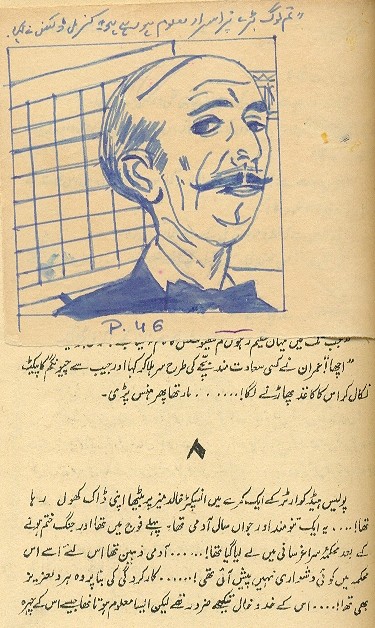 "تم لوگ بڑے پراسرار معلوم ہو رہے ہو" کنرل ڈکسن نے کہا۔
P. 46
"اچھا" عمران نے کسی سعادت مند بچّے کی طرح سر ہلا کر کہا اور جیب سے چیونگم کا پیکٹ
نکال کر اس کا کاغذ پھاڑنے لگا!...... مارتھا پھر ہنس پڑی۔
۸
پولیس ہیڈکوارٹر کے ایک کمرے میں انسپکٹر خالد میز پر بیٹھا اپنی ڈاک کھول رہا
تھا!.... یہ ایک تنومند اور جواں سال آدمی تھا۔ پہلے فوج میں تھا اور جنگ ختم ہونے
کے بعد محکمۂ سراغ رسانی میں لے لیا گیا تھا!...... آدمی ذہین تھا اس لئے اسے اس
محکمہ میں کوئی دشواری نہیں پیش آئی تھی!...... کارکردگی کی بنا پر وہ ہر دلعزیز
بھی تھا!.... اس کے خد و خال تیکھے ضرور تھے لیکن ایسا معلوم ہوتا تھا جیسے اس کے چہرہ